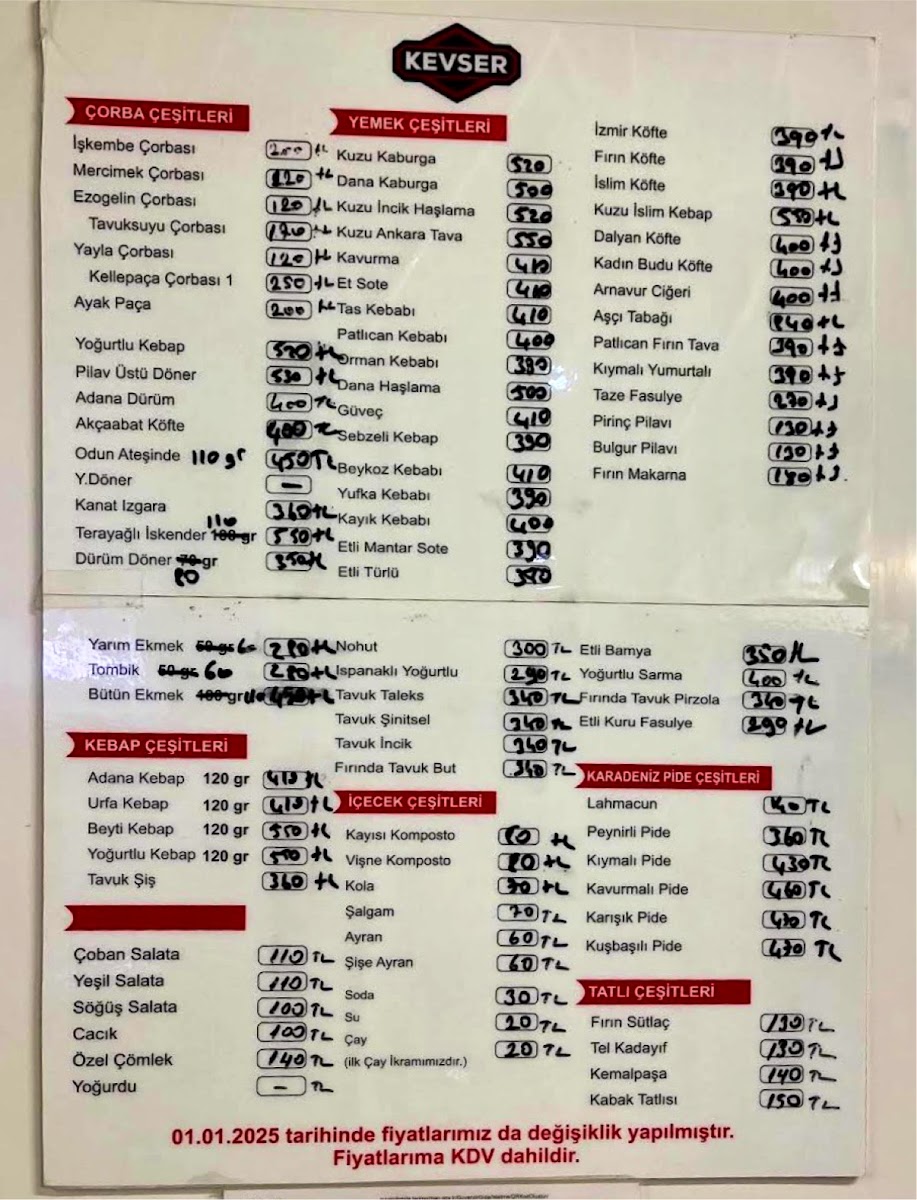 KEVSER
ÇORBA ÇEŞİTLERİ
İşkembe Çorbası 200 TL
Mercimek Çorbası 120 TL
Ezogelin Çorbası 120 TL
Tavuksuyu Çorbası 120 TL
Yayla Çorbası 120 TL
Kellepaça Çorbası 1 250 TL
Ayak Paça 200 TL
Yoğurtlu Kebap
Pilav Üstü Döner 530 TL
Adana Dürüm 400 TL
Akçaabat Köfte 400 TL
Odun Ateşinde 110 gr 450 TL
Y.Döner –
Kanat Izgara 360 TL
Terayağlı İskender 100 gr 110 550 TL
Dürüm Döner 70 gr 80 350 TL
Yarım Ekmek 50 gr 60 280 TL
Tombik 50 gr 60 280 TL
Bütün Ekmek 100 gr 110 450 TL
KEBAP ÇEŞİTLERİ
Adana Kebap 120 gr 410 TL
Urfa Kebap 120 gr 410 TL
Beyti Kebap 120 gr 550 TL
Yoğurtlu Kebap 120 gr 550 TL
Tavuk Şiş 360 TL
Çoban Salata 110 TL
Yeşil Salata 110 TL
Söğüş Salata 100 TL
Cacık 100 TL
Özel Çömlek 140 TL
Yoğurdu – TL
YEMEK ÇEŞİTLERİ
Kuzu Kaburga 520
Dana Kaburga 500
Kuzu İncik Haşlama 520
Kuzu Ankara Tava 550
Kavurma 410
Et Sote 410
Tas Kebabı 410
Patlıcan Kebabı 400
Orman Kebabı 390
Dana Haşlama 500
Güveç 410
Sebzeli Kebap 390
Beykoz Kebabı 410
Yufka Kebabı 390
Kayık Kebabı 400
Etli Mantar Sote 390
Etli Türlü
Nohut 300 TL
Ispanaklı Yoğurtlu 290 TL
Tavuk Taleks 340 TL
Tavuk Şinitsel 340 TL
Tavuk İncik 340 TL
Fırında Tavuk But 340 TL
İÇECEK ÇEŞİTLERİ
Kayısı Komposto 80 TL
Vişne Komposto 80 TL
Kola 70 TL
Şalgam 70 TL
Ayran 60 TL
Şişe Ayran 60 TL
Soda 30 TL
Su 20 TL
Çay 20 TL
(ilk Çay İkramımızdır.)
İzmir Köfte 390 TL
Fırın Köfte 390 TL
İslim Köfte 390 TL
Kuzu İslim Kebap 550 TL
Dalyan Köfte 400 TL
Kadın Budu Köfte 400 TL
Arnavur Ciğeri 400 TL
Aşçı Tabağı TL
Patlıcan Fırın Tava 390 TL
Kıymalı Yumurtalı 390 TL
Taze Fasulye TL
Pirinç Pilavı 130 TL
Bulgur Pilavı 130 TL
Fırın Makarna 180 TL
Etli Bamya 350 TL
Yoğurtlu Sarma 400 TL
Fırında Tavuk Pirzola 340 TL
Etli Kuru Fasulye 290 TL
KARADENİZ PİDE ÇEŞİTLERİ
Lahmacun 140 TL
Peynirli Pide 360 TL
Kıymalı Pide 430 TL
Kavurmalı Pide 460 TL
Karışık Pide 470 TL
Kuşbaşılı Pide 470 TL
TATLI ÇEŞİTLERİ
Fırın Sütlaç 130 TL
Tel Kadayıf 130 TL
Kemalpaşa 140 TL
Kabak Tatlısı 150 TL
01.01.2025 tarihinde fiyatlarımız da değişiklik yapılmıştır.
Fiyatlarıma KDV dahildir.